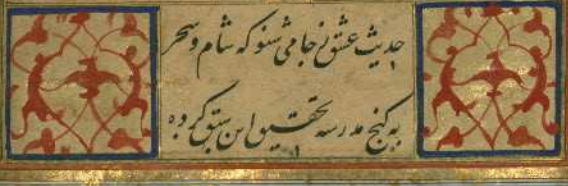 حدیث عشق ز جامی شنو که شام و سحر
به کنج مدرسه تحقیق این سبق کرده